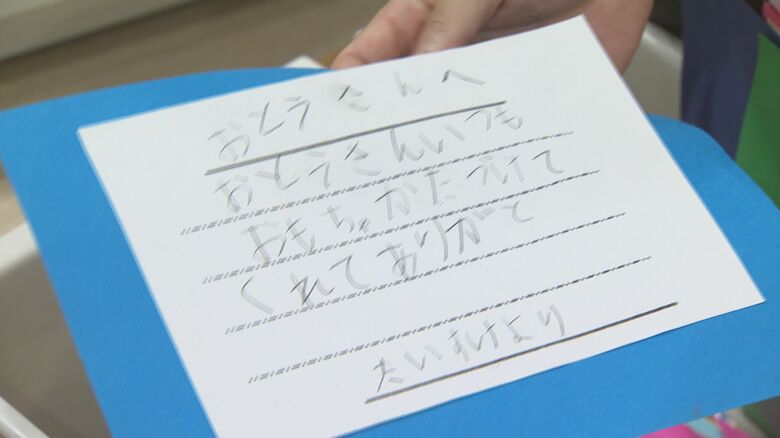 おとうさんへ
おとうさんいつも
おもちゃかたづけて
くれてありがと
たいすけより